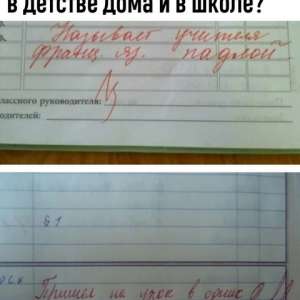 в детстве дома и в школе?
Называет учителя
франц. яз. падлой
лассного руководителя:
одителей:
§ 1
Пришел на урок в одних